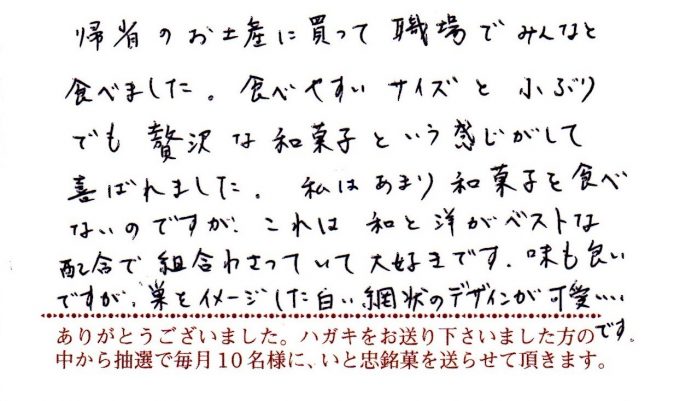 帰省のお土産に買って職場でみんなと
食べました。食べやすいサイズと小ぶり
でも贅沢な和菓子という感じがして
喜ばれました。私はあまり和菓子を食べ
ないのですが、これは和と洋がベストな
配合で組合わさっていて大好きです。味も良い
ですが、巣をイメージした白い網状のデザインが可愛い…
です。
ありがとうございました。ハガキをお送り下さいました方の
中から抽選で毎月10名様に、いと忠銘菓を送らせて頂きます。